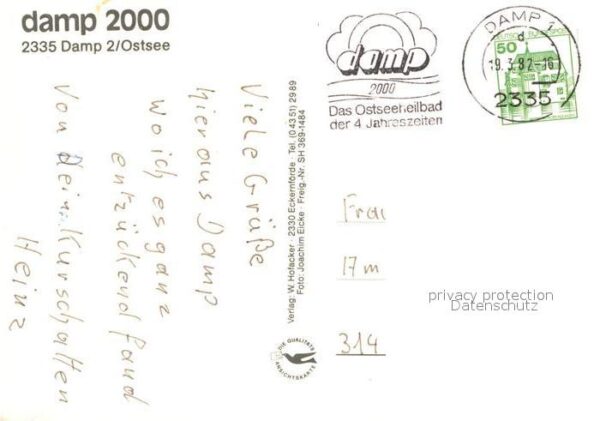 damp 2000
2335 Damp 2/Ostsee
Viele Grüße
hier aus Damp
wo ich es ganz
entzückend fand
Von Dein. Kurschatten
Heinz
Verlag: W. Hofacker · 2330 Eckernförde · Tel. (0 43 51) 29 89
Foto: Joachim Eicke · Freig.-Nr. SH 369-1484
DIE QUALITÄTS
ANSICHTSKARTE
damp
2000
Das Ostseeheilbad
der 4 Jahreszeiten
DAMP 1
d
19.3.82-16
2335
50
DEUTSCHE BUNDESPOST
Frau
17 m
314
privacy protection
Datenschutz